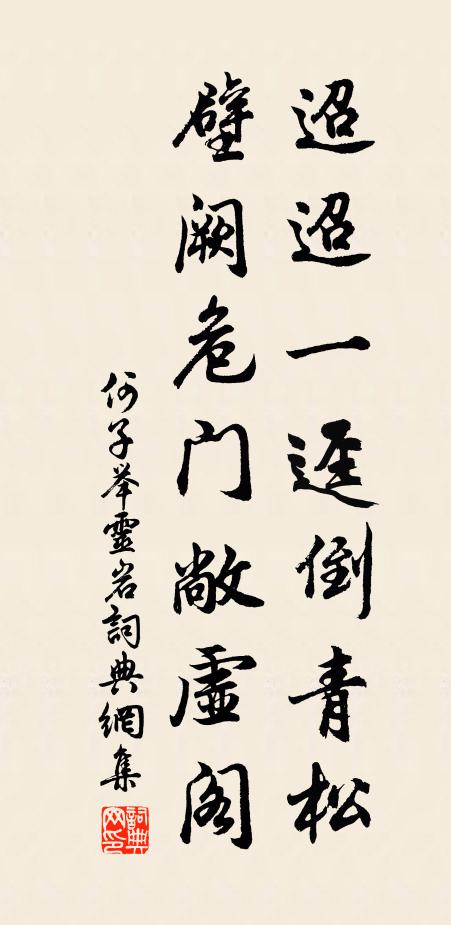 迢迢一逕倒青松
壁阙危門敞虛阁
何子举靈岩詞典網集
詞典网印